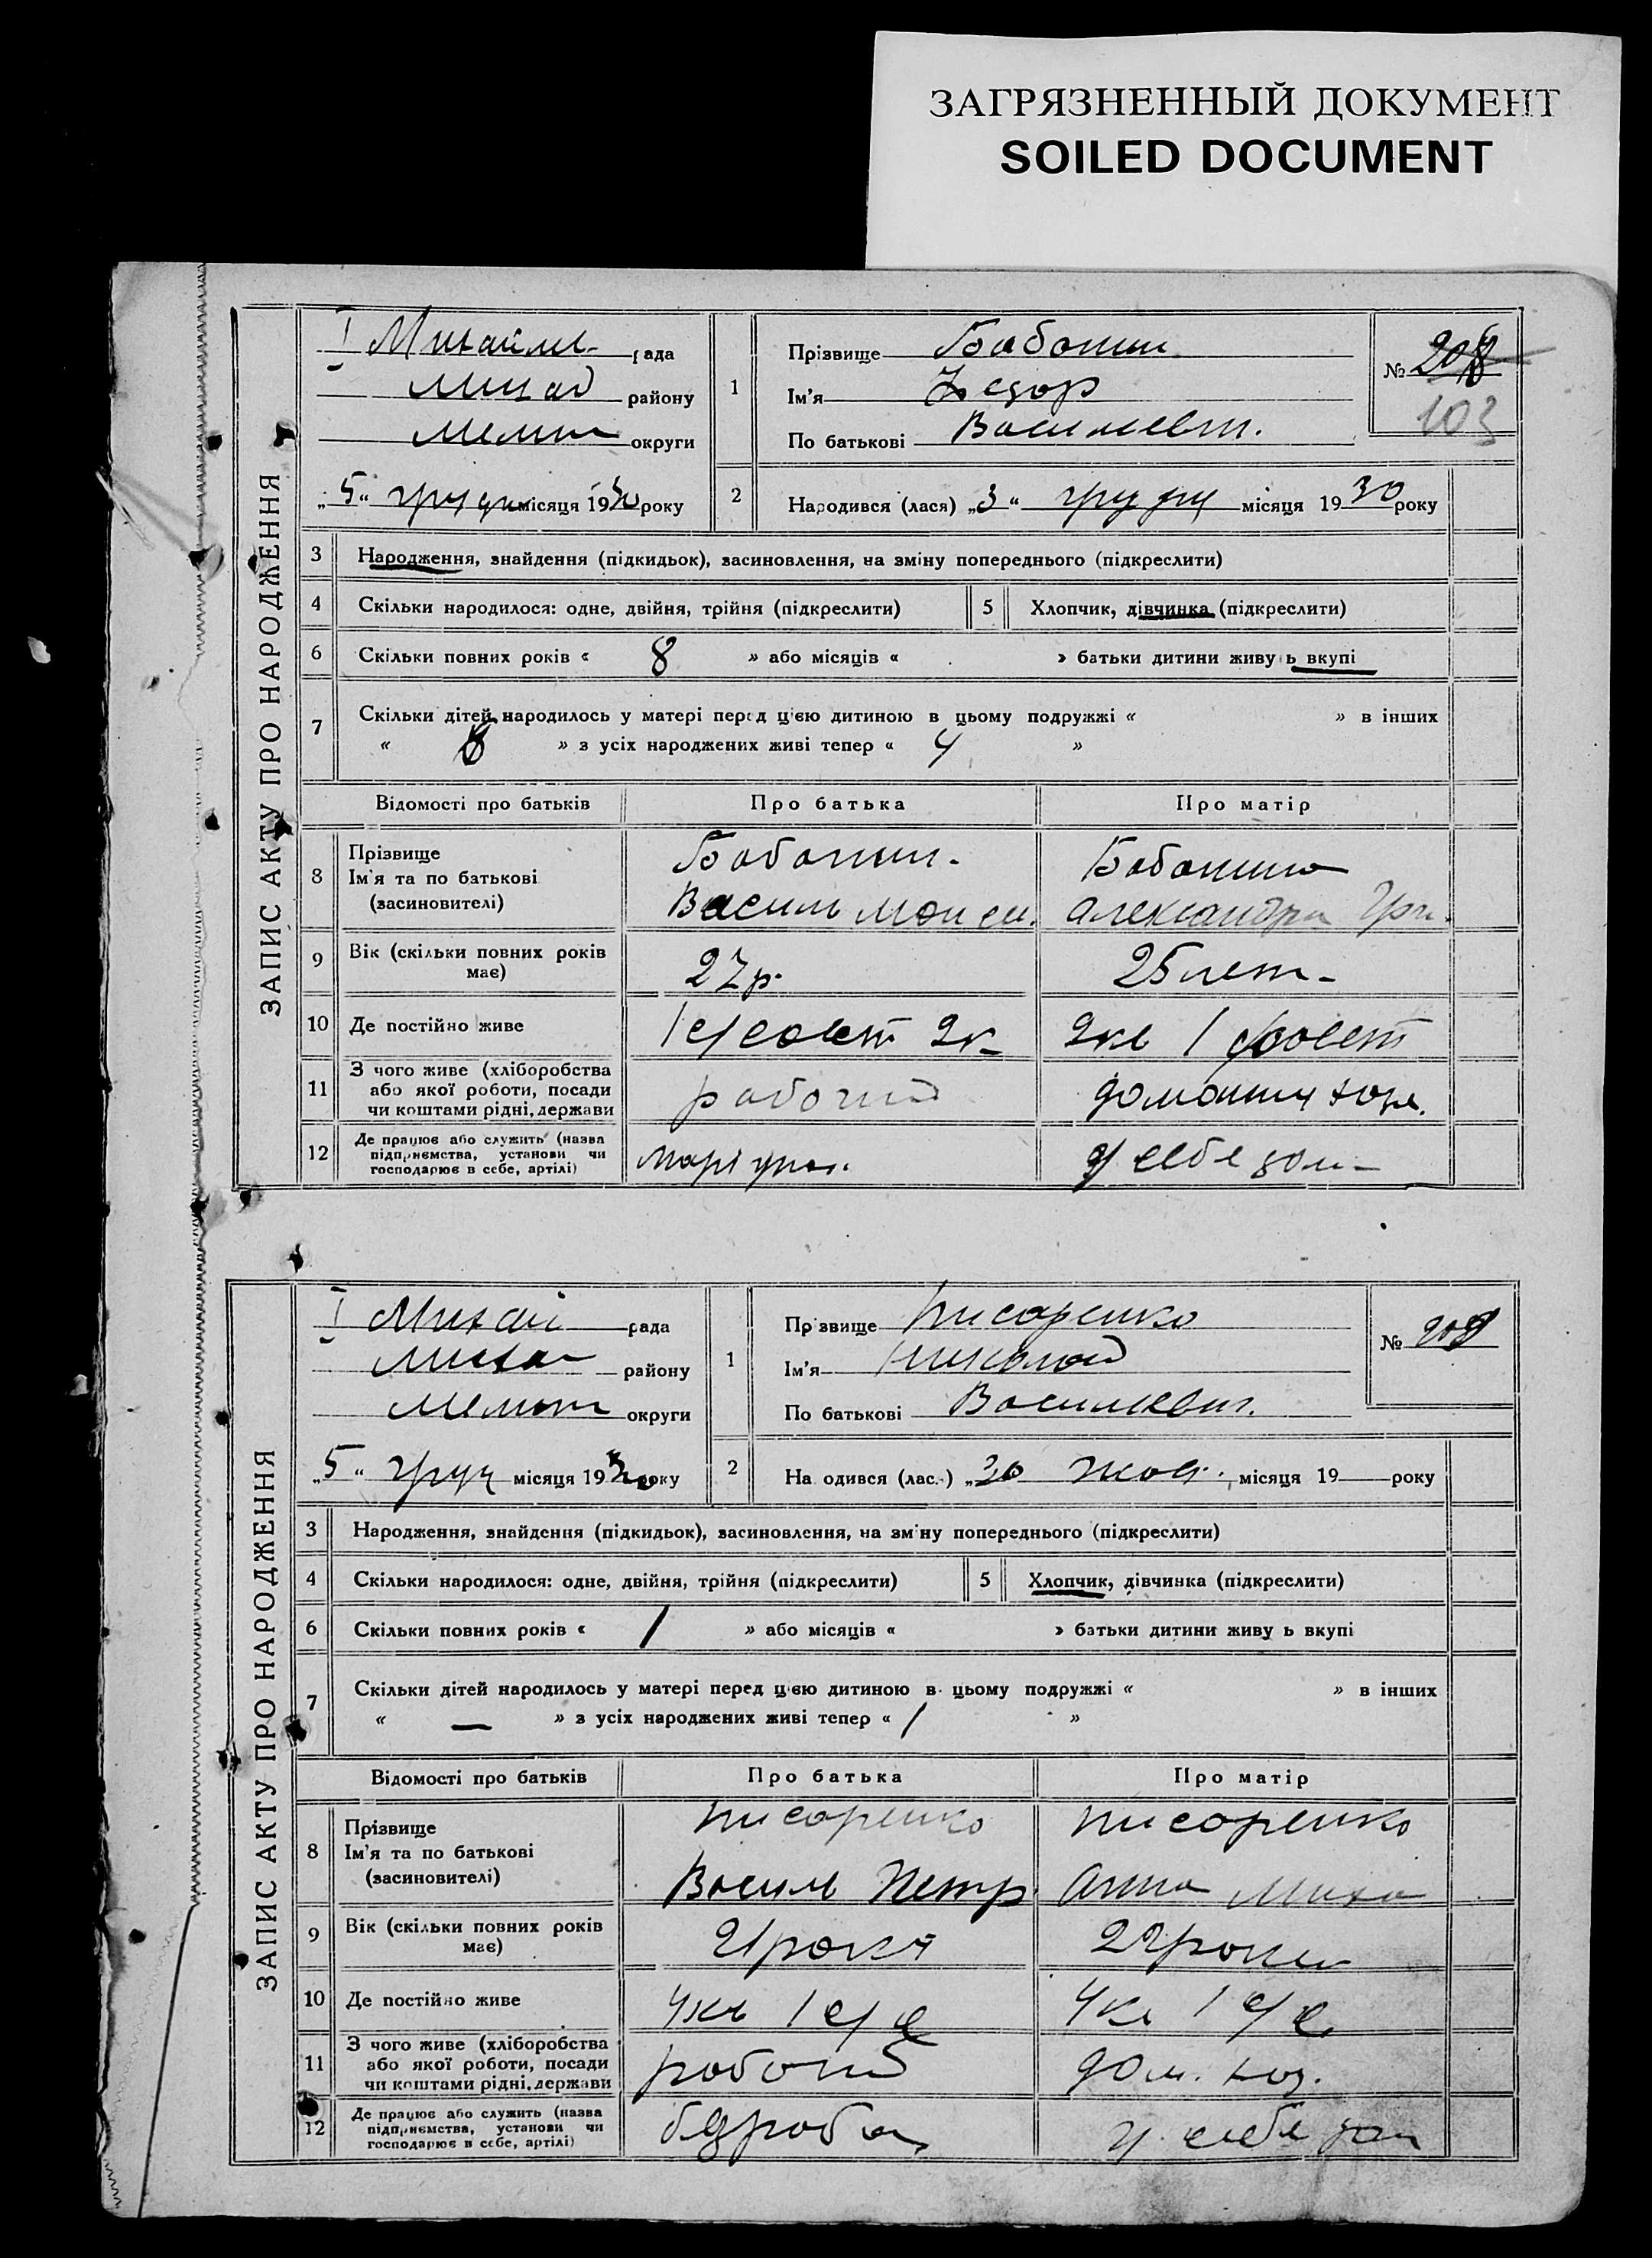 ЗАГРЯЗНЕННЫЙ ДОКУМЕНТ
SOILED DOCUMENT
ЗАПИС АКТУ ПРО НАРОДЖЕННЯ
I Михайл. рада
Михай району
Мелит округи
„5“ грудн місяця 1930 року
1
Прізвище Бабонин
Ім'я Федор
По батькові Васильевич.
№ 208
103
2
Народився (лася) „3“ грудн місяця 1930 року
3 Народження, знайдення (підкидьок), засиновлення, на зміну попереднього (підкреслити)
4 Скільки народилося: одне, двійня, трійня (підкреслити) 5 Хлопчик, дівчинка (підкреслити)
6 Скільки повних років « 8 » або місяців « » батьки дитини живу ь вкупі
7 Скільки дітей народилось у матері перед цією дитиною в цьому подружжі « » в інших
« » з усіх народжених живі тепер « 4 »
Відомості про батьків Про батька Про матір
8 Прізвище
Ім'я та по батькові
(засновителі)
Бабонин.
Василь Моисе.
Бабонина
Александра Гри.
9 Вік (скільки повних років має) 27 р. 25 лет-
10 Де постійно живе 1 с/совет 2к- 2кв 1 с/совет
11 З чого живе (хліборобства
або якої роботи, посади
чи коштами рідні, держави
рабочий домашн хозя.
12 Де працює або служить (назва
підприємства, установи чи
господарює в себе, артілі)
у себе дом-
ЗАПИС АКТУ ПРО НАРОДЖЕННЯ
I Михай рада
Миха району
Мелит округи
„5“ груд місяця 1930 року
1
Прізвище Писаренко
Ім'я Николай
По батькові Василевич.
№ 209
2
На одився (лас.) „30 жов. місяця 19 року
3 Народження, знайдення (підкидьок), засиновлення, на зм'ну попереднього (підкреслити)
4 Скільки народилося: одне, двійня, трійня (підкреслити) 5 Хлопчик, дівчинка (підкреслити)
6 Скільки повних років « 1 » або місяців « » батьки дитини живу ь вкупі
7 Скільки дітей народилось у матері перед цією дитиною в цьому подружжі « » в інших
« — » з усіх народжених живі тепер « 1 »
Відомості про батьків Про батька Про матір
8 Прізвище
Ім'я та по батькові
(засиновителі)
Писаренко
Василь Петр
Писаренко
Анна Миха
9 Вік (скільки повних років має) 21 рока 22 роки
10 Де постійно живе 4кв 1 с/с 4кв 1 с/с
11 З чого живе (хліборобства
або якої роботи, посади
чи коштами рідні, держави
робочий дом. хоз.
12 Де працює або служить (назва
підприємства, установи чи
господарює в себе, артілі)
у себе дом